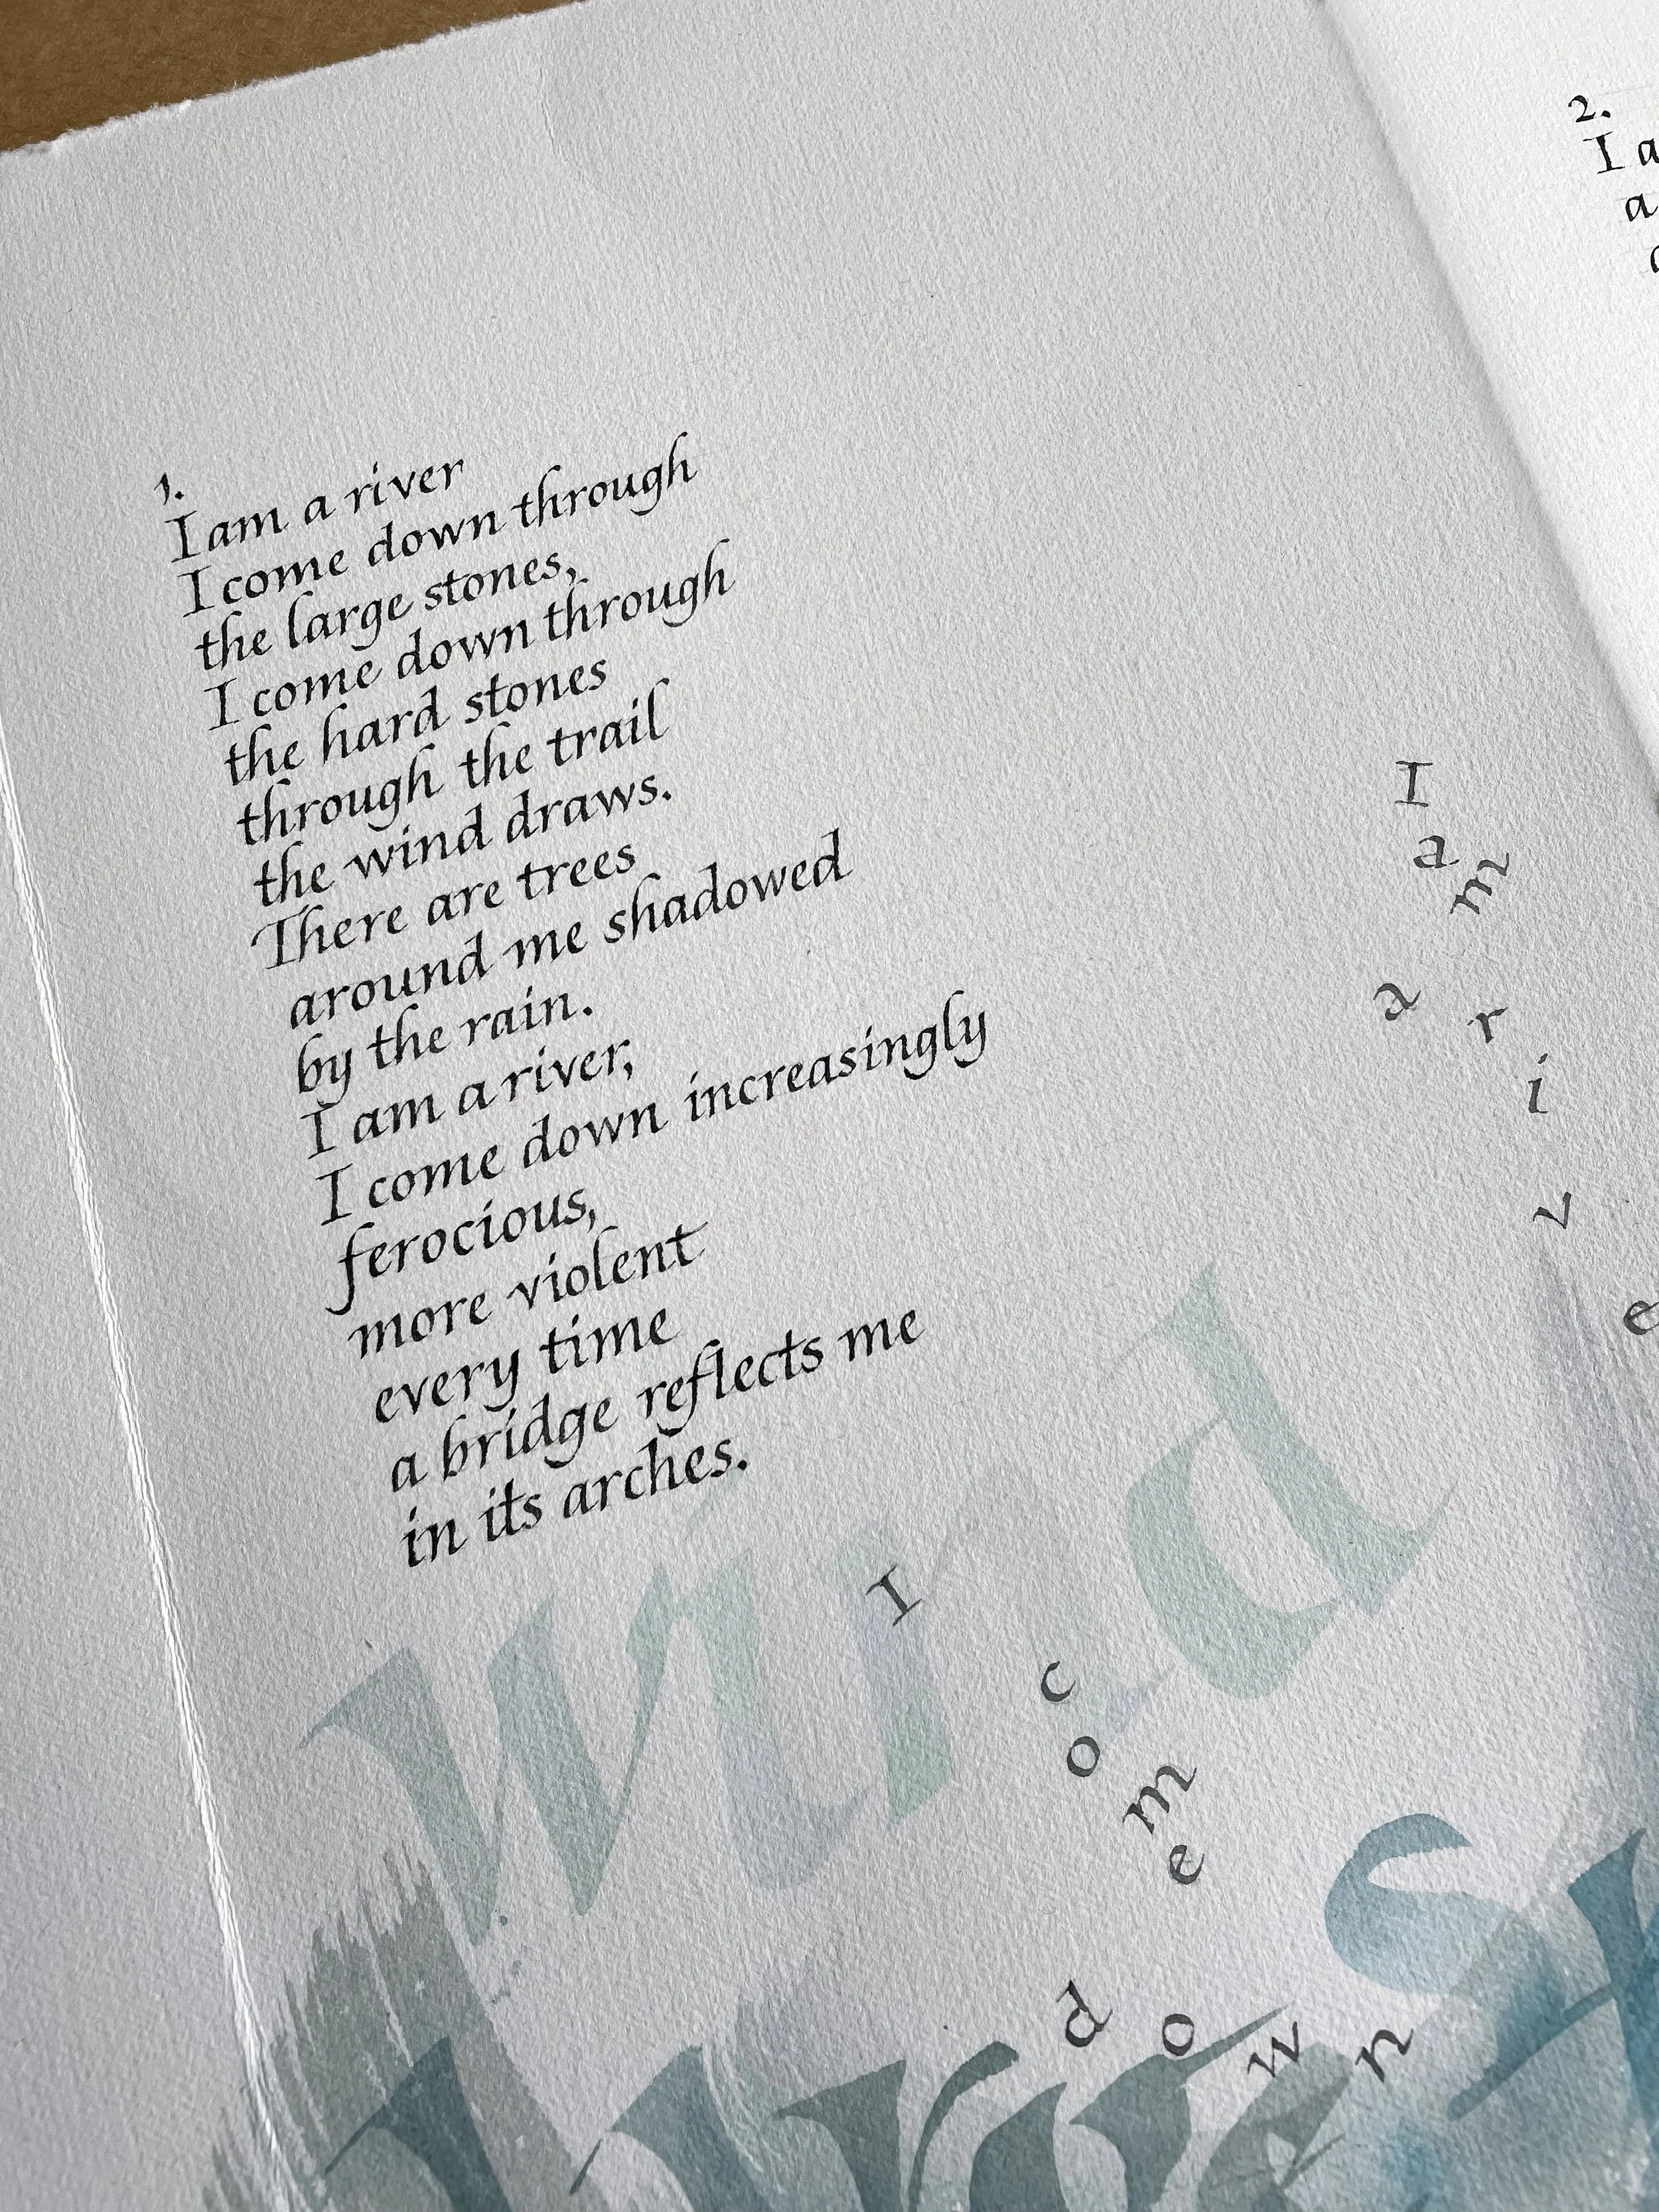 1.
I am a river
I come down through
the large stones,
I come down through
the hard stones
through the trail
the wind draws.
There are trees
around me shadowed
by the rain.
I am a river,
I come down increasingly
ferocious,
more violent
every time
a bridge reflects me
in its arches.
I am a rive
wind
I come down
2.
I a
a